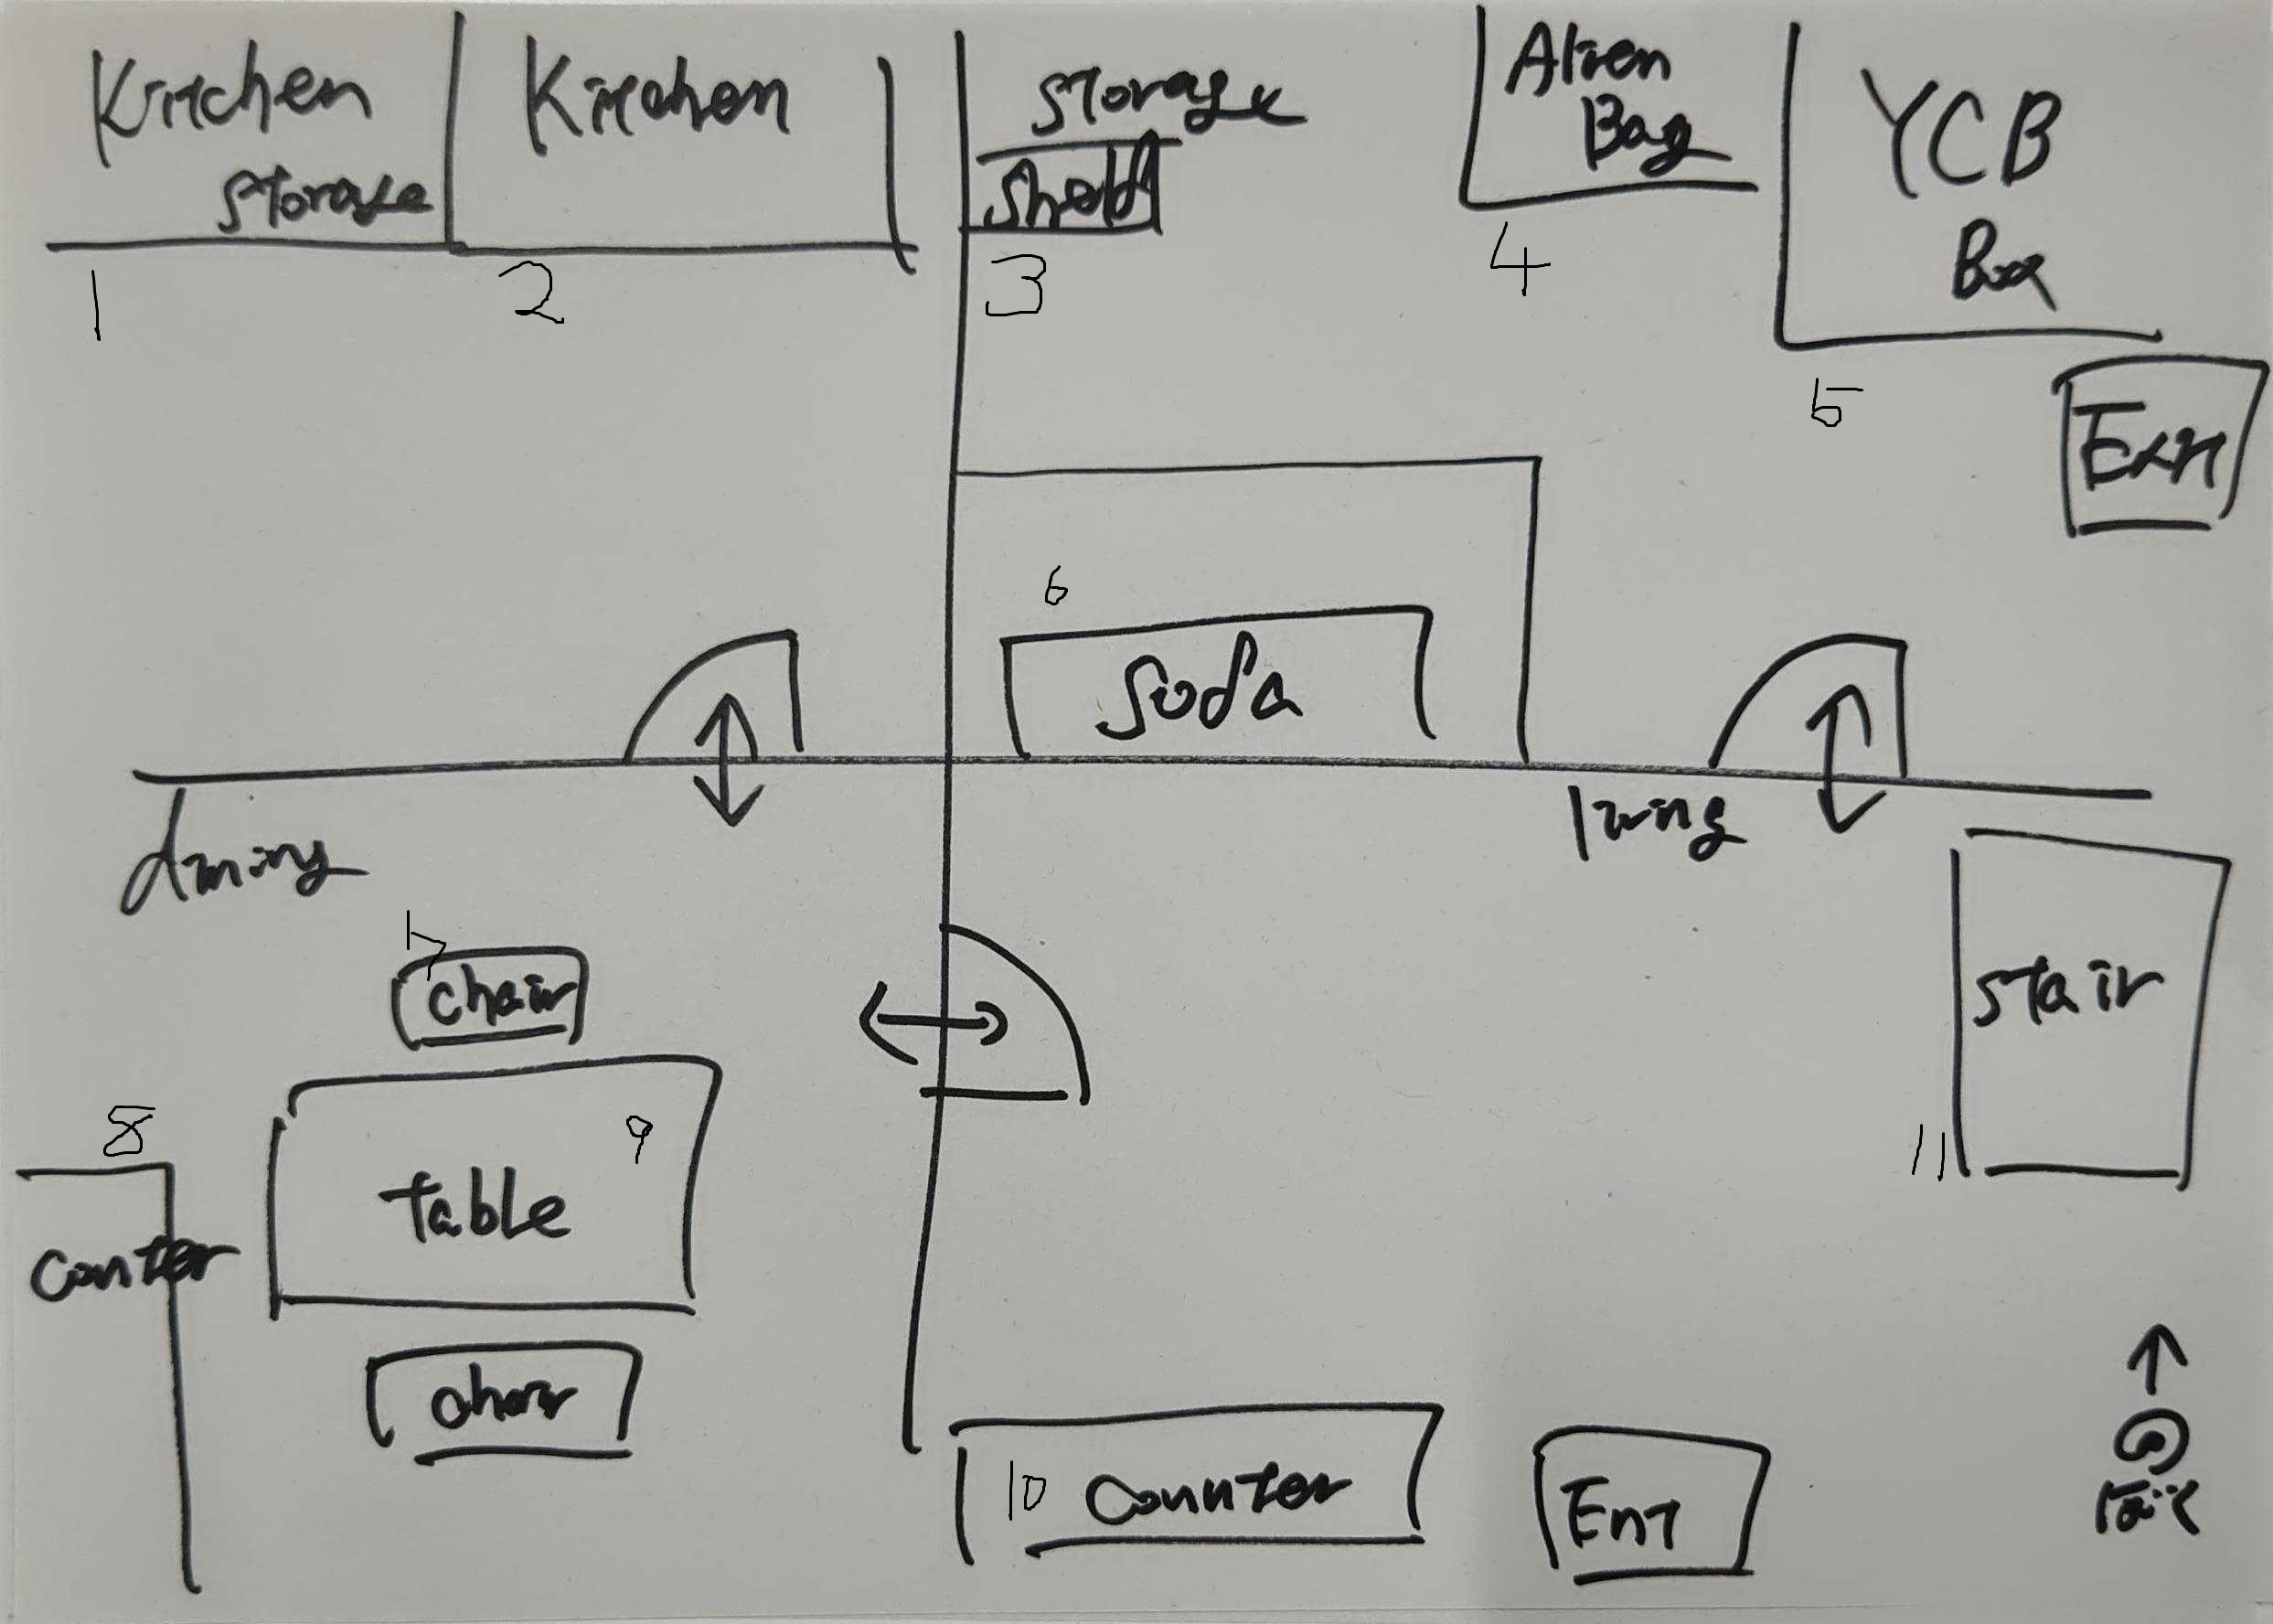 Kitchen
storage
Kitchen
storage
Shelf
Alien
Bag
YCB
Box
1
2
3
4
5
Exit
6
Soda
dining
living
7
chair
stair
8
9
table
11
counter
chair
10
counter
Ent